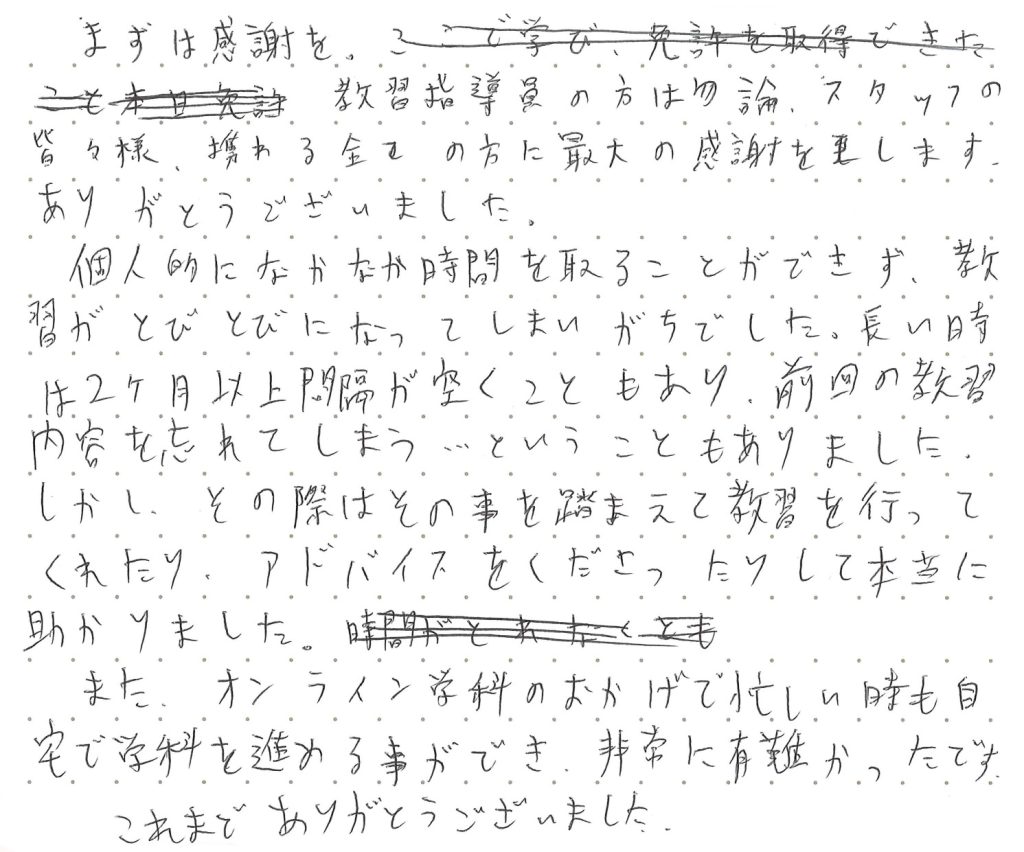 まずは感謝を。ここで学び、免許を取得できた
こと本日免許 教習指導員の方は勿論、スタッフの
皆々様、携わる全ての方に最大の感謝を表します。
ありがとうございました。
個人的になかなか時間を取ることができず、教
習がとびとびになってしまいがちでした。長い時
は2ケ月以上間隔が空くこともあり、前回の教習
内容を忘れてしまう…ということもありました。
しかし、その際はその事を踏まえて教習を行って
くれたり、アドバイスをくださったりして本当に
助かりました。時間がとれなくとも
また、オンライン学科のおかげで忙しい時も自
宅で学科を進める事ができ、非常に有難かったです。
これまでありがとうございました。